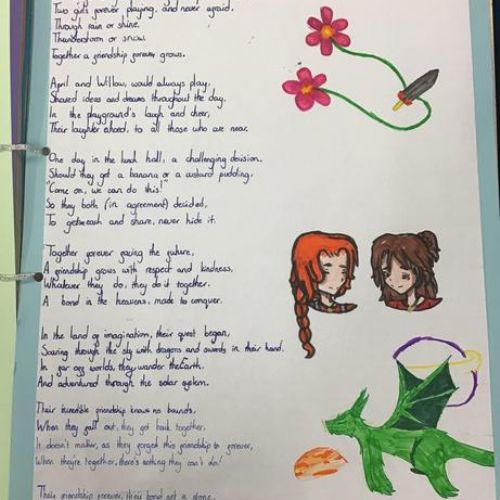 Two girls forever playing, and never afraid,
Through rain or shine.
Thunderstorm or snow.
Together a friendship forever grows.
April and Willow, would always play.
Shared ideas and dreams throughout the day.
In the playground's laugh and cheer,
Their laughter ahord, to all those who are near.
One day in the lunch hall, a challenging decision.
Should they get a banana or a custard pudding,
"Come on, we can do this!"
So they both (in agreement) decided,
To get each and share, never hide it.
Together forever facing the future,
A friendship grows with respect and kindness,
Whatever they do, they do it together.
A bond in the heavens, made to conquer.
In the land of imagination, their quest began,
Soaring through the sky with dragons and swords in their hand.
In far off worlds, they wander the Earth.
And adventured through the solar system.
Their incredible friendship knows no bounds,
When they fall out, they get back together,
It doesn't matter, as they forged this friendship to forever,
When they're together, there's nothing they can't do!
Their friendship forever, their bond set a stone,